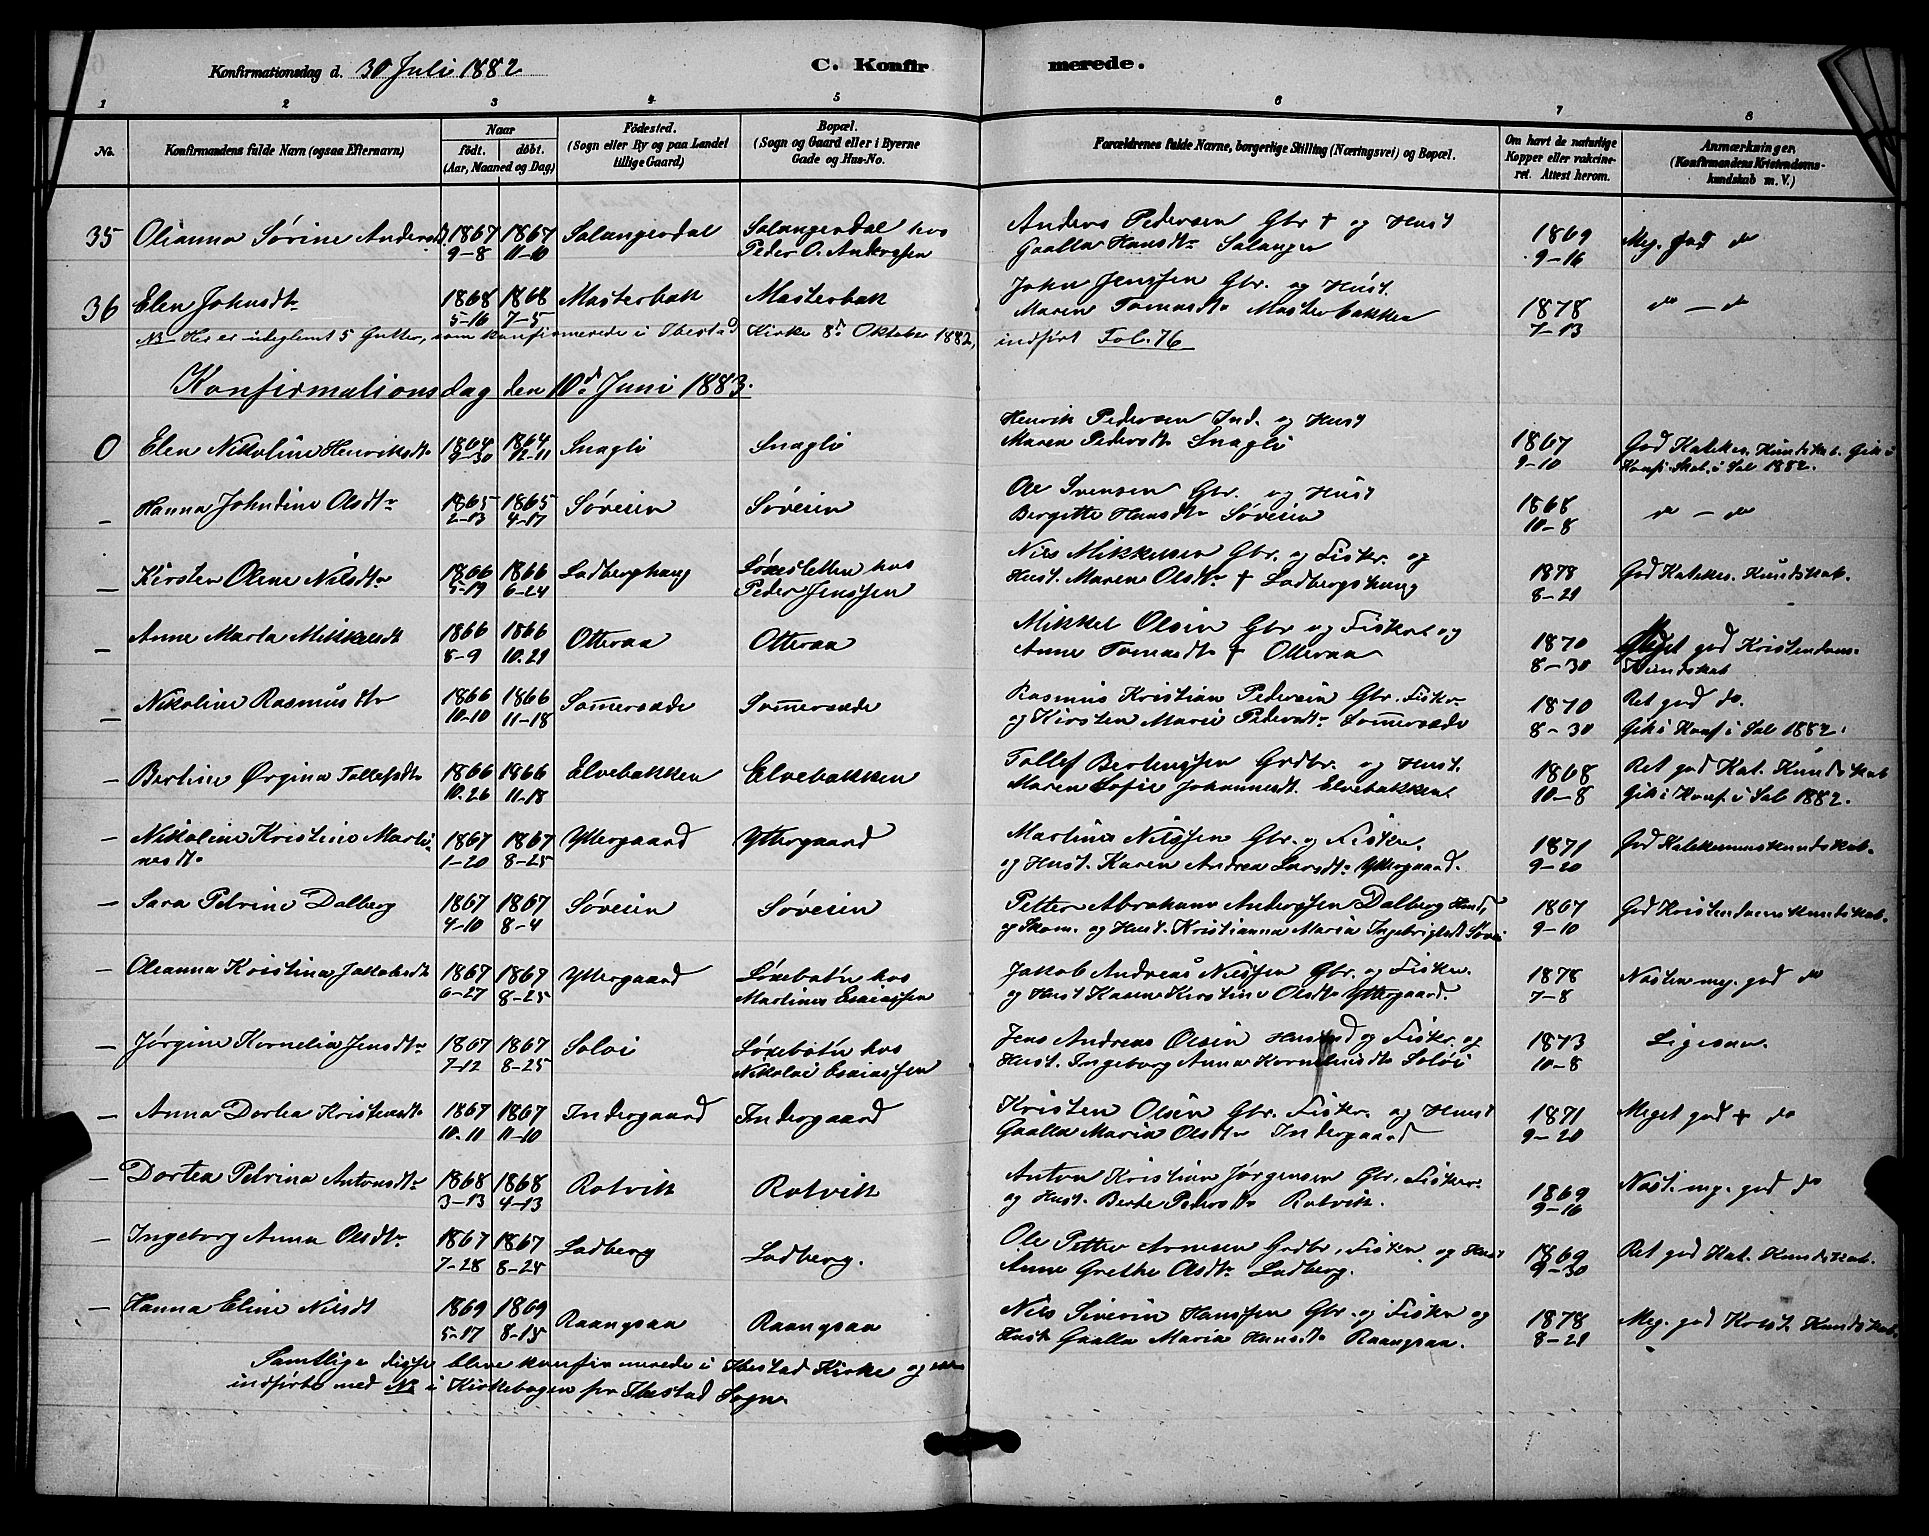 Konfirmationsdag d. 30 Juli 1882
C. Konfirmerede.
1 2 3 4 5 6 7 8
No.
Konfirmandens fulde Navn (ogsaa Efternavn)
Naar
födt. döbt.
(Aar, Maaned og Dag)
Födested.
(Sogn eller By og paa Landet
tillige Gaard)
Bopæl.
(Sogn og Gaard eller i Byerne
Gade og Hus-No.
Forældrenes fulde Navne, borgerlige Stilling (Næringsvei) og Bopæl.
Om havt de naturlige
Kopper eller vakcine-
ret. Attest herom.
Anmærkninger.
(Konfirmandens Kristendoms-
kundskab m. V.)
35 Olianna Sørine Andersd. 1867 1867 Salangsdal Salangsdal hos Anders Pedersen Gbr † og Hust 1869 Meg. god do
9-8 11-10 Peder O. Anderssen Gaalla Hansdtr Salangen 9-16
36 Elen Johnsdtr 1868 1868 Masterbak Masterbak John Jenssen Gbr. og Hust. 1878 do - do
5-16 7-5 Maren Tomasdtr Masterbakken 7-13
NB Her er udeglemt 5 Gutter, som konfirmerede i Ibestad Kirke 8de Oktober 1882, indført Fol. 76
Konfirmationsdag den 10de Juni 1883.
0 Elen Nikoline Henriksdtr 1864 1864 Snagli Snagli Henrik Pedersen Ind. og Hust 1867 God Katekes. Kundskab. Gik i
9-30 12-11 Maren Pedersdtr Snagli 9-10 Konf. Skol. i Sal 1882.
- Hanna Johndine Olsdtr 1865 1865 Søveien Søveien Ole Svensen Gbr. og Hust 1868 do - do
2-13 4-17 Bergitte Hansdtr Søveien 10-8
- Kirsten Olene Nilsdtr 1866 1866 Ladberghaug Løvesletten hos Nils Mikkelsen Gbr. og Fisker. og 1878 God Katekes. Kundskab.
5-19 6-24 Peder Jenssen Hust. Maren Olsdtr † Ladbergshaug 8-21
- Anne Marta Mikkelsdt 1866 1866 Otteraa Otteraa Mikkel Olsen Gbr og Fisker og 1870 Meget god Kristendoms-
8-9 10.21 Anne Tomasdtr † Otteraa 8-30 Kundskab
- Nikoline Rasmusdtr 1866 1866 Sommersæde Sommersæde Rasmus Kristian Pedersen Gbr. Fisker 1870 Ret god do.
10-10 11-18 og Kirsten Marie Pedersdtr Sommersæde 8-30 Gik i Konf. i Sal 1882.
- Bertine Ørgina Tollefsdtr 1866 1866 Elvebakken Elvebakken Tollef Bertenssen Grdbr. og Hust. 1868 Ret god Kat. Kundskab
10.26 11-18 Maren Sofie Johannesdt. Elvebakken. 10-8 Gik i Konf. i Sal 1882.
- Nikoline Kristine Marti- 1867 1867 Yttergaard Yttergaard Martinus Nilssen Gbr. og Fisker 1871 God Katekismuskundskab.
nesdtr 1-20 8-25 og Hust. Karen Andrea Larsdtr Yttergaard. 9-20
- Sara Petrine Dalberg 1867 1867 Søveien Søveien Petter Abraham Anderssen Dalberg Husm. 1867 God Kristendomskundskab.
4-10 8-4 og Skom. og Hust. Kristianna Maria Ingebrigtsdt Søvei 9-10
- Oleanna Kristina Jakobsdt 1867 1867 Yttergaard Løvebotn hos Jakob Andreas Nilssen Gbr. og Fisker. 1878 Næsten meg. god do
6-27 8-25 Martinus Esaiassen og Hust Karen Kirstine Olsdtr Yttergaard. 7-8
- Jørgine Kornelia Jensdtr 1867 1867 Soløi Løvebotn hos Jens Andreas Olsen Husmd og Fisker. og 1873 Ligesaa.
7-12 8-25 Nikolai Esaiassen Hust. Ingeborg Anna Korneliusdtr Soløi 10-8
- Anna Dortea Kristensdtr 1867 1867 Indergaard Indergaard Kristen Olsen Gbr. Fisker. og Hust 1871 Meget god + do
10.11 11-10 Gaalla Maria Olsdtr Indergaard 9-20
- Dortea Petrina Antonsdtr 1868 1868 Rotvik Rotvik Anton Kristian Jørgensen Gbr. Fisker. 1869 Næst. mg. god do
3-13 4-13 og Hust. Berte Pedersdtr Rotvik. 9-16
- Ingeborg Anna Olsdtr 1867 1867 Ladberg Ladberg. Ole Petter Arnesen Grdbr. Fisker og Hust 1869 Ret god Kat. Kundskab.
7-28 8-24 Anne Grethe Olsdtr Ladberg. 9-30
- Hanna Eline Nilsdt 1869 1869 Raangsaa Raangsaa Nils Siverin Hanssen Gbr. og Fisker og 1878 Meg. god Krist. Kundskab.
5-17 8-15 Hust Gaalla Maria Hansdtr Raangsaa. 8-21
Samtlige disse bleve konfirmerede i Ibestad Kirke og ere
indførte med No i Kirkebogen for Ibestad Sogn